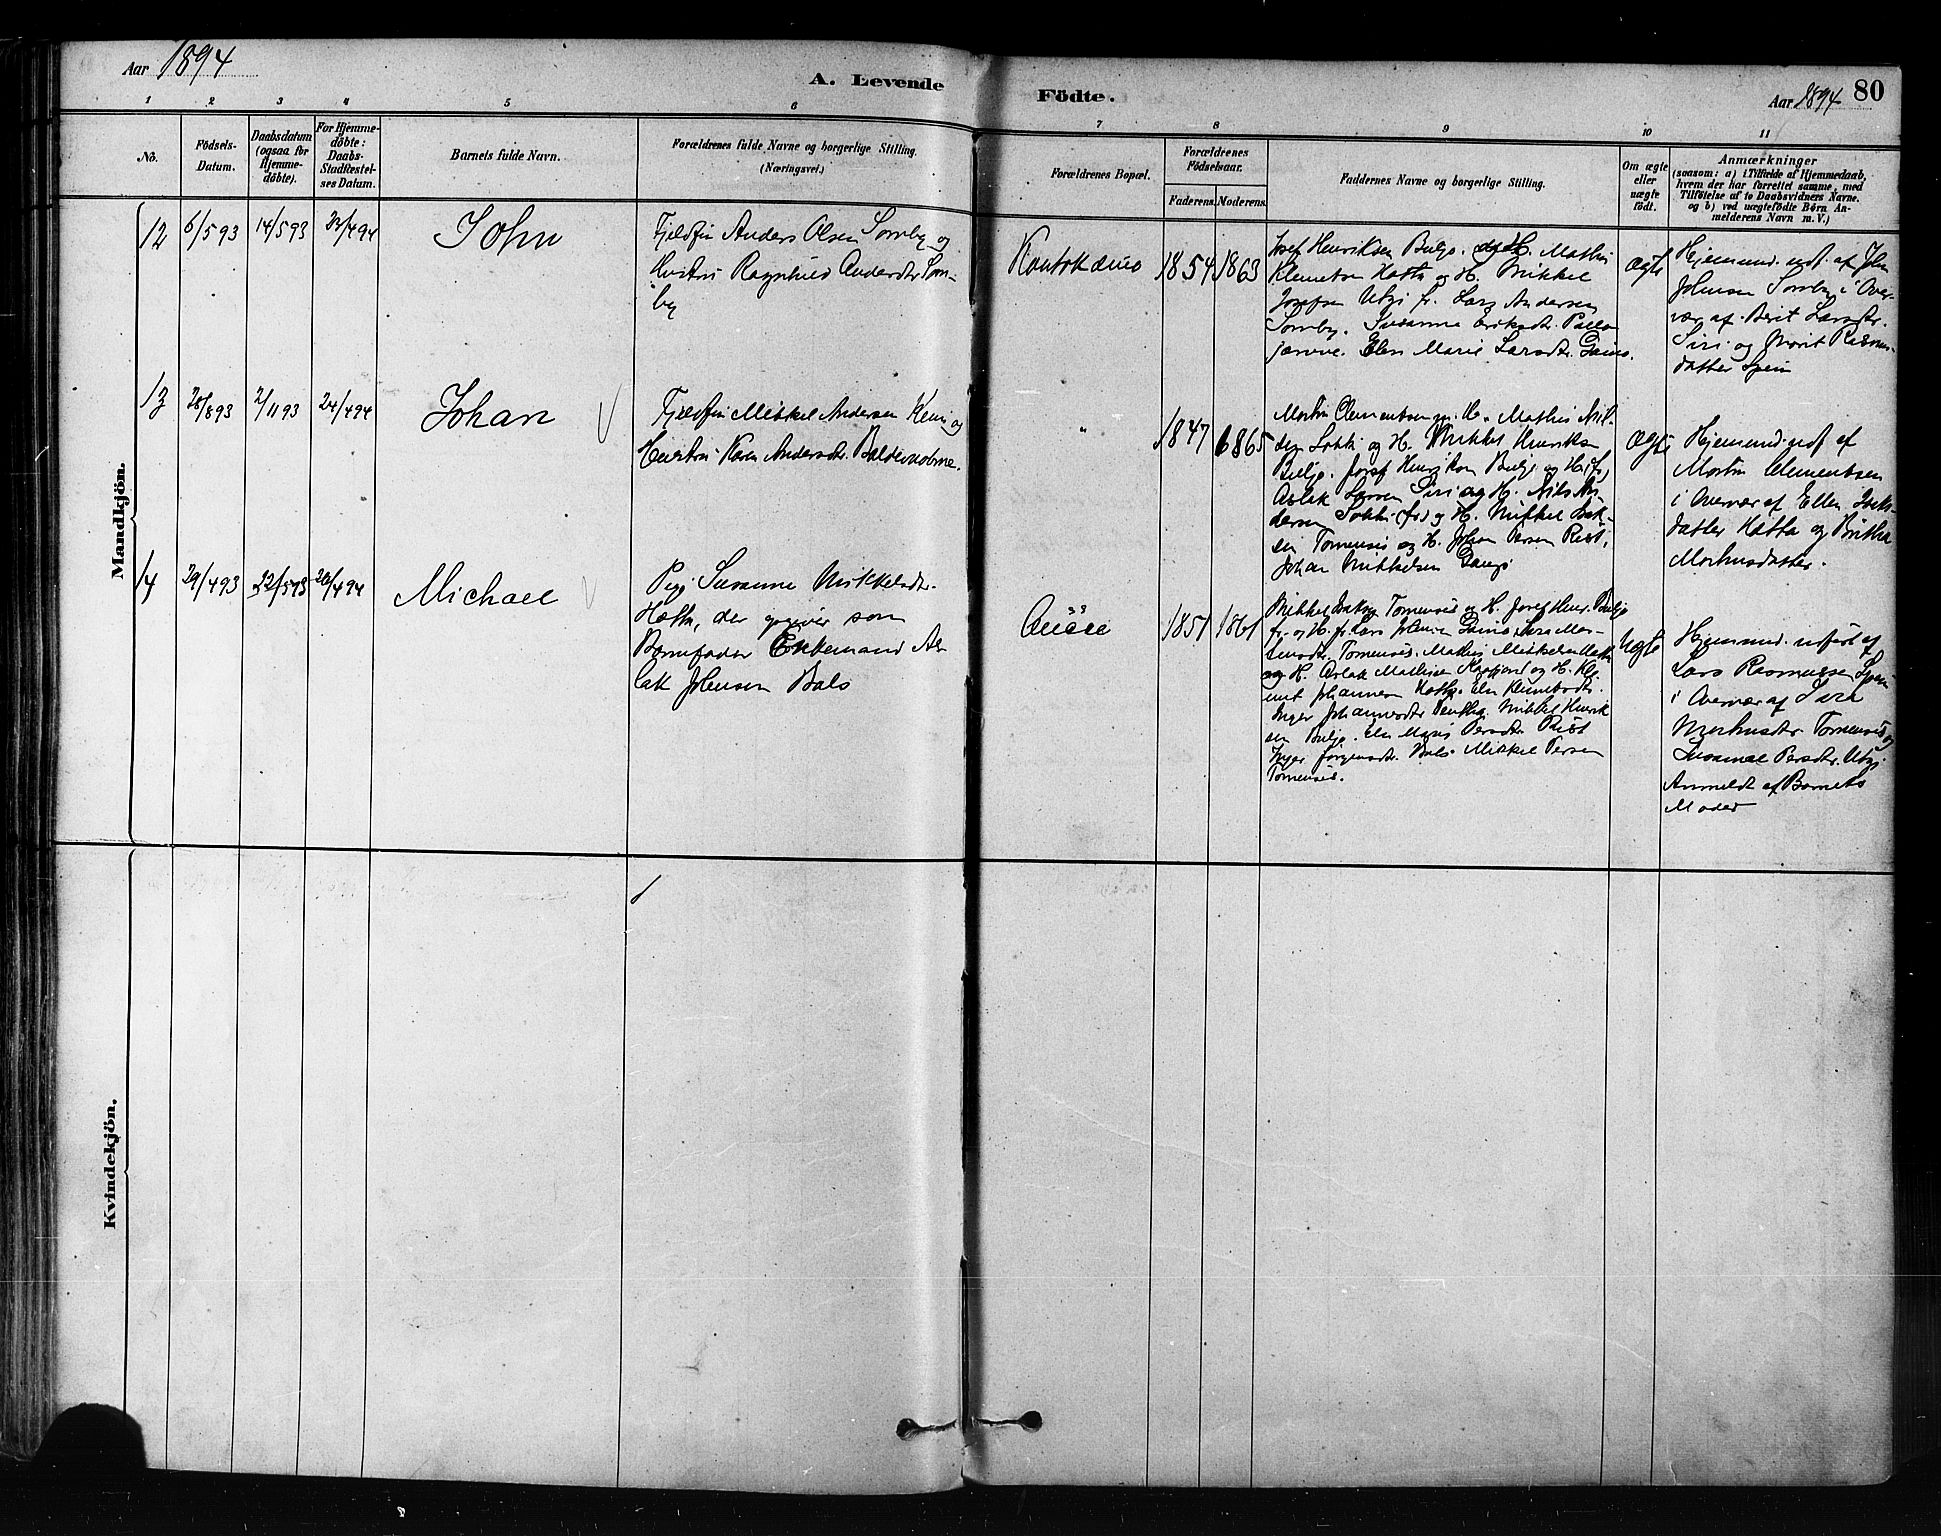 Aar 1894
A. Levende
Födte.
Aar 1894
80
1 2 3 4 5 6 7 8 9 10 11
No.
Födsels-
Datum.
Daabsdatum
(ogsaa for
Hjemme-
döbte).
For Hjemme-
döbte:
Daabs-
Stadfæstel-
ses Datum.
Barnets fulde Navn.
Forældrenes fulde Navne og borgerlige Stilling.
(Næringsvei.)
Forældrenes Bopæl.
Forældrenes
Födselsaar.
Faderens.
Moderens.
Faddernes Navne og borgerlige Stilling.
Om ægte
eller
uægte
födt.
Anmærkninger
(saasom: a) i Tilfælde af Hjemmedaab,
hvem der har forrettet samme, med
Tilföielse af to Daabsvidners Navne.
og b) ved uægtefödte Börn An-
melderens Navn m. V.)
Mandkjön.
12
6/5 93
14/5 93
/4 94
John
Fjeldfin Anders Olsen Somby og
Hustru Ragnhild Andersdtr. Som-
by
Kautokeino
1854
1863
Josef Henriksen Buljo. og H. Mathis
Klemetsen Hætta og H. Mikkel
Josefsen Utsi fr. Lars Andersen
Somby. Susanne Eriksdtr. Palo
jærvve. Elen Marie Larsdtr. Gaino.
ægte
Hjemmed. udf. af John
Johnsen Somby i Over-
vær af Berit Larsdtr.
Siri og Marit Rasmus-
datter Spein
13
28/8 93
2/11 93
24/4 94
Johan
Fjeldfin Mikkel Andersen Kemi og
Hustru Karen Andersdtr. Baldevuobme.
"
1847
1865
Morten Clementsen m. H. Mathis Nil-
sen Lokki og H. Mikkel Henriks
Buljo. Josef Henriksen Buljo og H. fr.
Aslak Larsen Siri og H. Nils An-
dersen Sokki fr. og H. Mikkel Isak-
sen Tornensis og H. Johan Persen Rist,
Johan Mikkelsen Gaup
ægte
Hjemmed. udf. af
Morten Clementsen
i Overvær af Ellen Isaks-
datter Hætta og Britha
Mathisdatter.
14
29/4 93
22/5 93
24/4 94
Michael
Pige Susanne Mikkelsdtr.
Hætta, der opgiver som
Barnefader Enkemand As-
lak Johnsen Bals
1851
1861
Mikkel Isaksen Tornensis og H. Josef Henr. Buljo
fr. og H. fr. Lars Johnsen Gaino Sara Mor-
tensdtr. Tornensis. Mathis Mikkelsen Hætta
og H. Aslak Mathisen Kaafjord og H. Kle-
met Johannesen Hætta. Elen Klemetsdtr.
Inger Johannesdtr. Mikkel Henrik
sen Buljo. Elen Maria Persdtr. Rist
Inger Jörgensdtr. Bals Mikkel Persen
Tornensis.
Uegte
Hjemmed. udfört af
Lars Rasmussen Spein
i Overvær af Sara
Morthensdtr. Tornensis og
Susanne Persdtr. Utsi.
Anmeldt af Barnets
Moder
Kvindekjön.